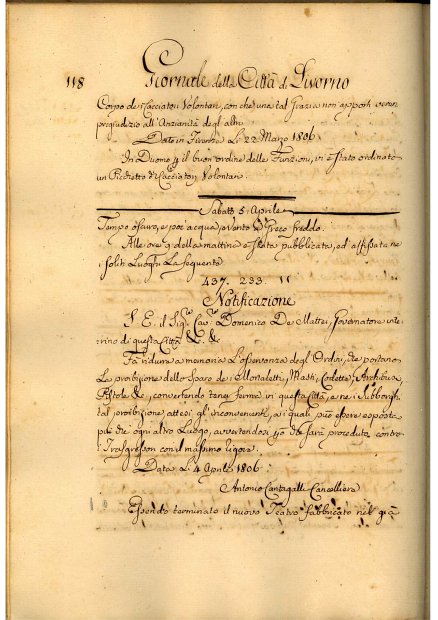 118
Giornale della Città di Livorno
Corpo de i Cacciatori Volontari, con che una tal Grazia non apporti verun
pregiudizio all'Anzianità degli altri
Dato in Firenze Li 22 Marzo 1806
In Duomo p il buon'ordine delle Funzioni, vi è stato ordinato
un Picchetto d'Cacciatori Volontari.
Sabato 5 Aprile
Tempo oscuro, e poi acqua, e vento Greco freddo.
Alle ore 9 della mattina è stata pubblicata, ed affissata ne
i soliti Luoghi La seguente
437. 233. 11
Notificazione
S. E. il Sigr. Cavr. Domenico De Mattei, Governatore inte
rino di questa Città &. &.
Fa ridurre a memoria L'osservanza degl'Ordini, che portano
La proibizione dello sparo de i Mortaletti, Masti, Codette, Archibusi,
Pistole &., convertendo tener ferma in questa Città, e ne i Subborghi
tal proibizione attesi gl'inconvenienti, a i quali può essere esposta
più che ogni altro Luogo, avvertendosi che sarà proceduto contro i
Trasgressori con il massimo rigore.
Data Li 4 Aprile 1806
Antonio Cantagalli Cancelliere
Essendo terminato il nuovo Teatro fabbricato nel già